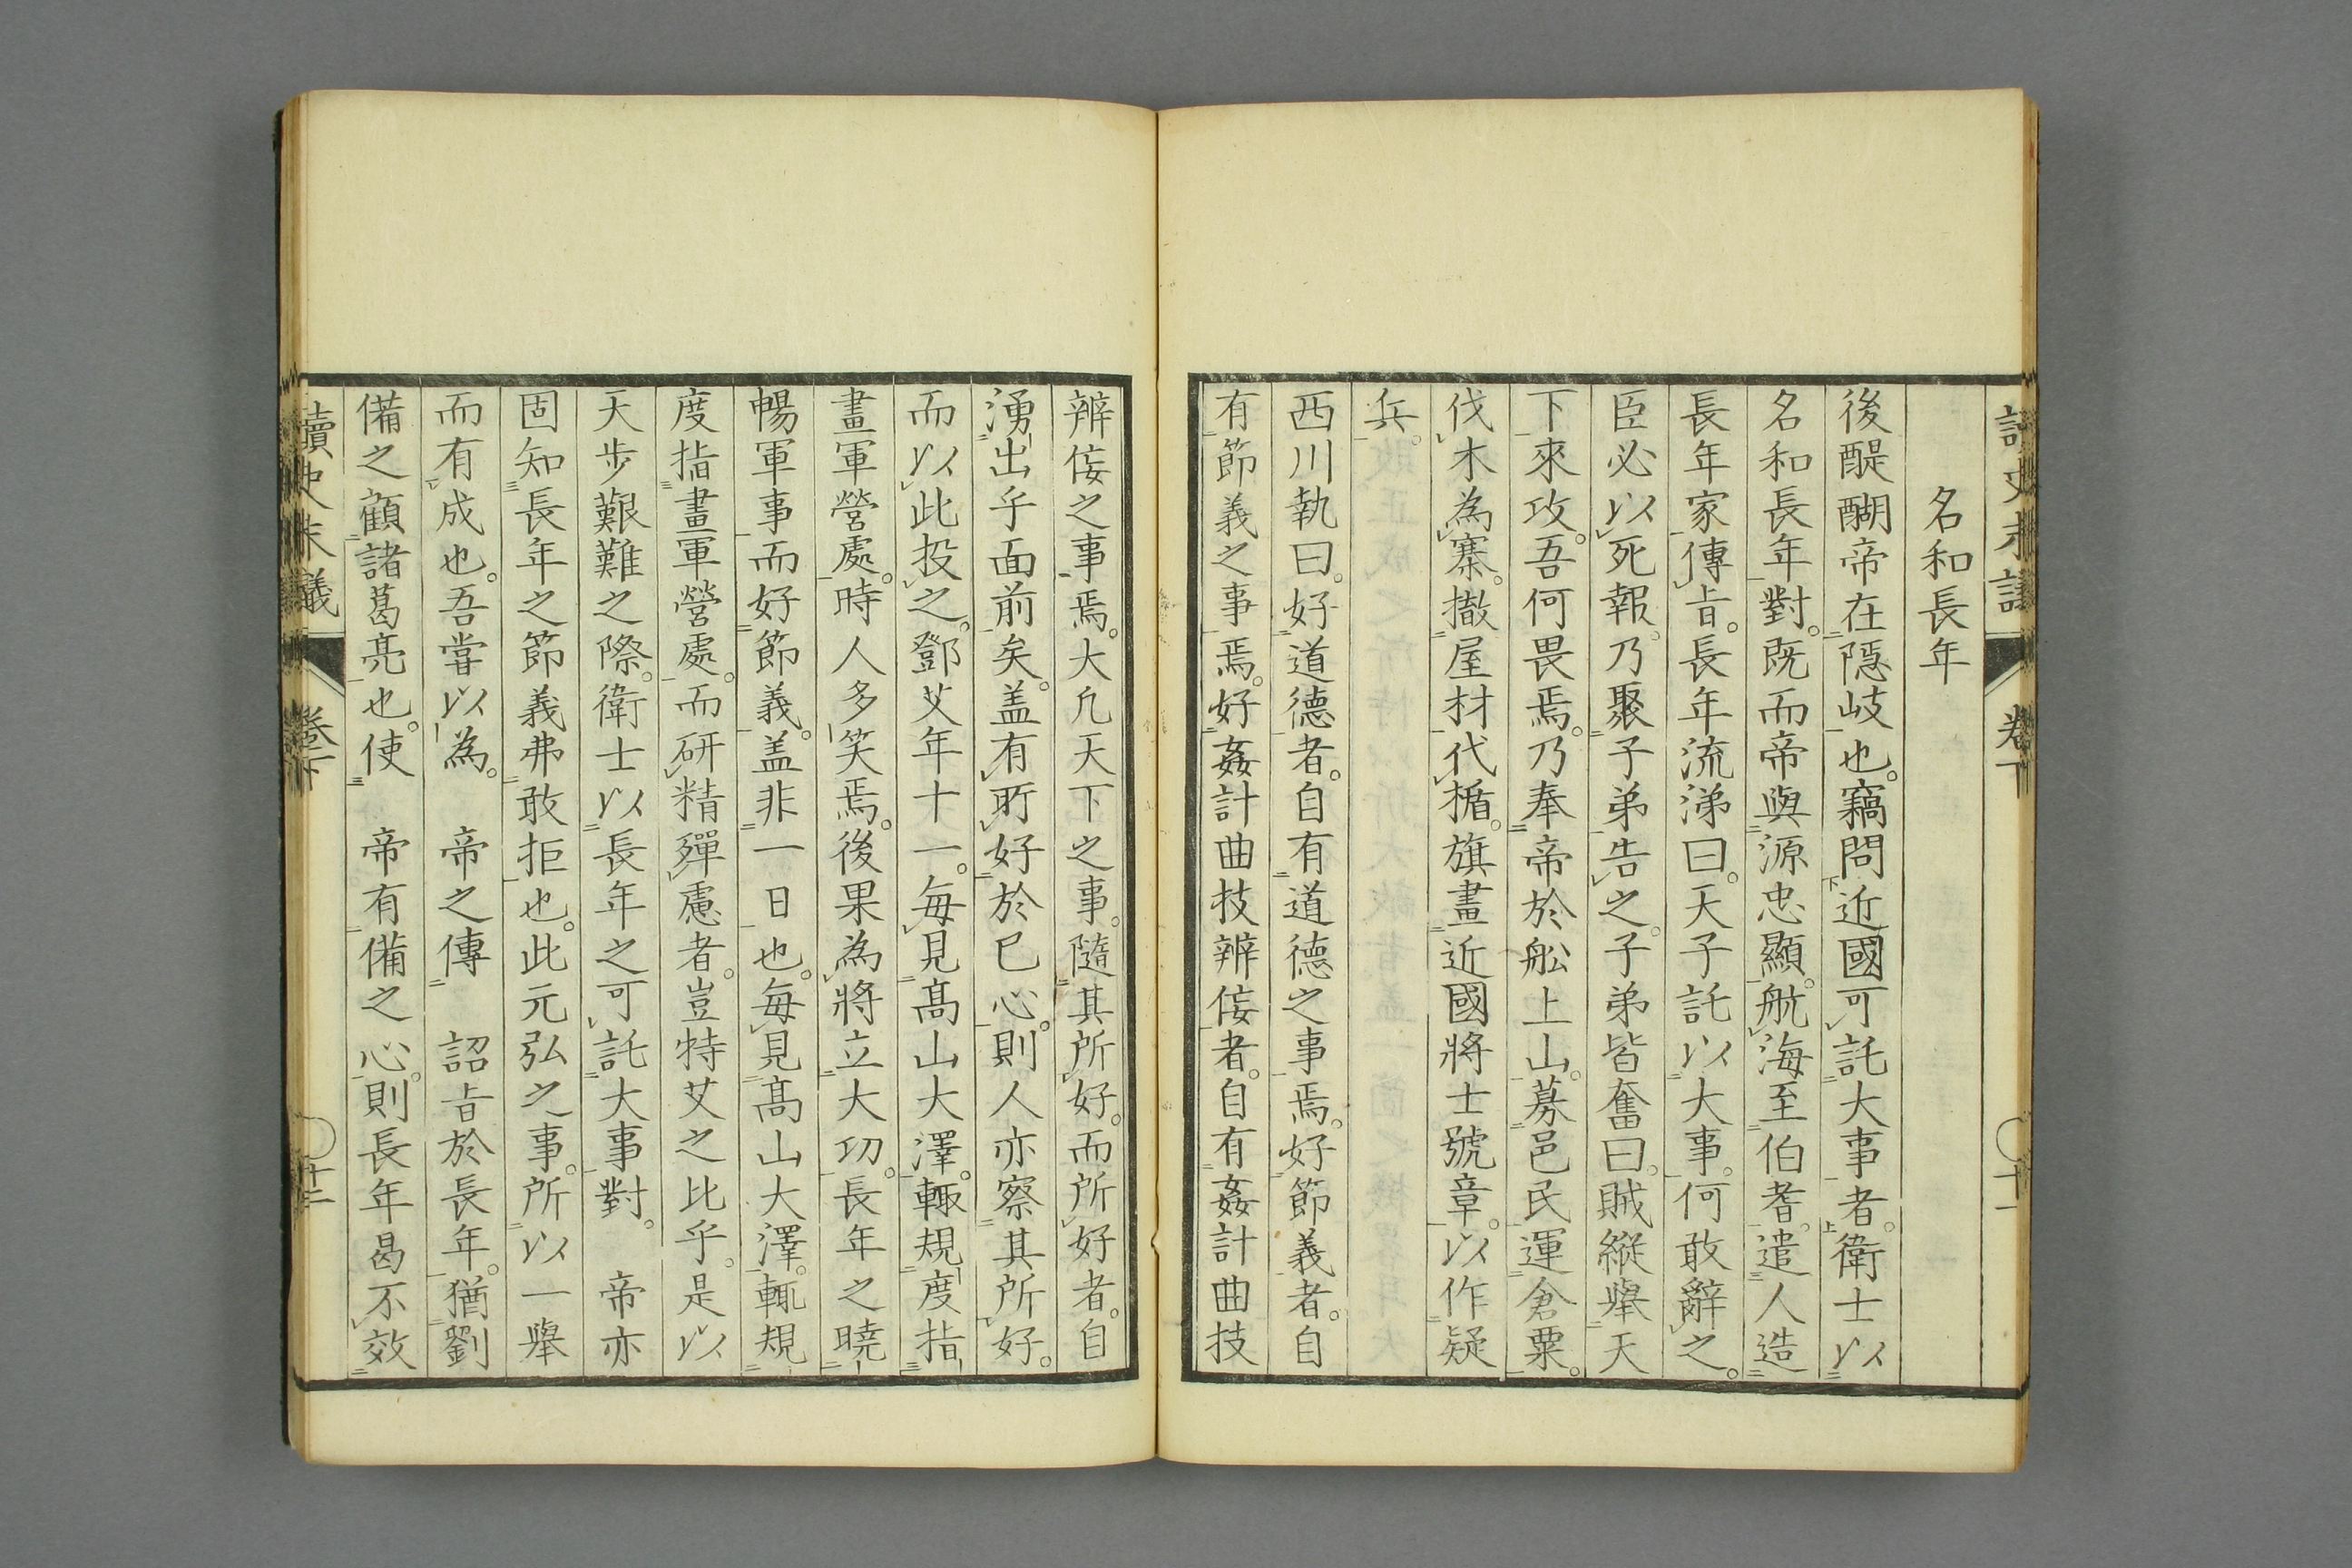 名和長年
後醍醐帝在隠岐也。竊問近國可託大事者。衛士以
名和長年對。既而帝與源忠顯。航海至伯耆。遣人造
長年家傳旨。長年流涕曰。天子託以大事。何敢辭之。
臣必以死報。乃聚子弟告之。子弟皆奮曰。賊縱擧天
下來攻。吾何畏焉。乃奉帝於舩上山。募邑民運倉粟。
伐木為寨。撤屋材代楯。旗畫近國將士號章。以作疑
兵。
西川執曰。好道德者。自有道德之事焉。好節義者。自
有節義之事焉。好姦計曲技辨侫者。自有姦計曲技
讀史末議 卷下 十一
辨侫之事焉。大凢天下之事。隨其所好。而所好者。自
湧出乎面前矣。盖有所好於已心。則人亦察其所好。
而以此投之。鄧艾年十一。毎見髙山大澤。輙規度指
畫軍營處。時人多笑焉。後果為將立大功。長年之曉
暢軍事而好節義。盖非一日也。毎見髙山大澤。輙規
度指畫軍營處。而研精殫慮者。豈特艾之比乎。是以
天步艱難之際。衛士以長年之可託大事對。帝亦
固知長年之節義弗敢拒也。此元弘之事。所以一擧
而有成也。吾嘗以為。帝之傳詔旨於長年。猶劉
備之顧諸葛亮也。使帝有備之心。則長年曷不效
讀史末議 卷下 十二